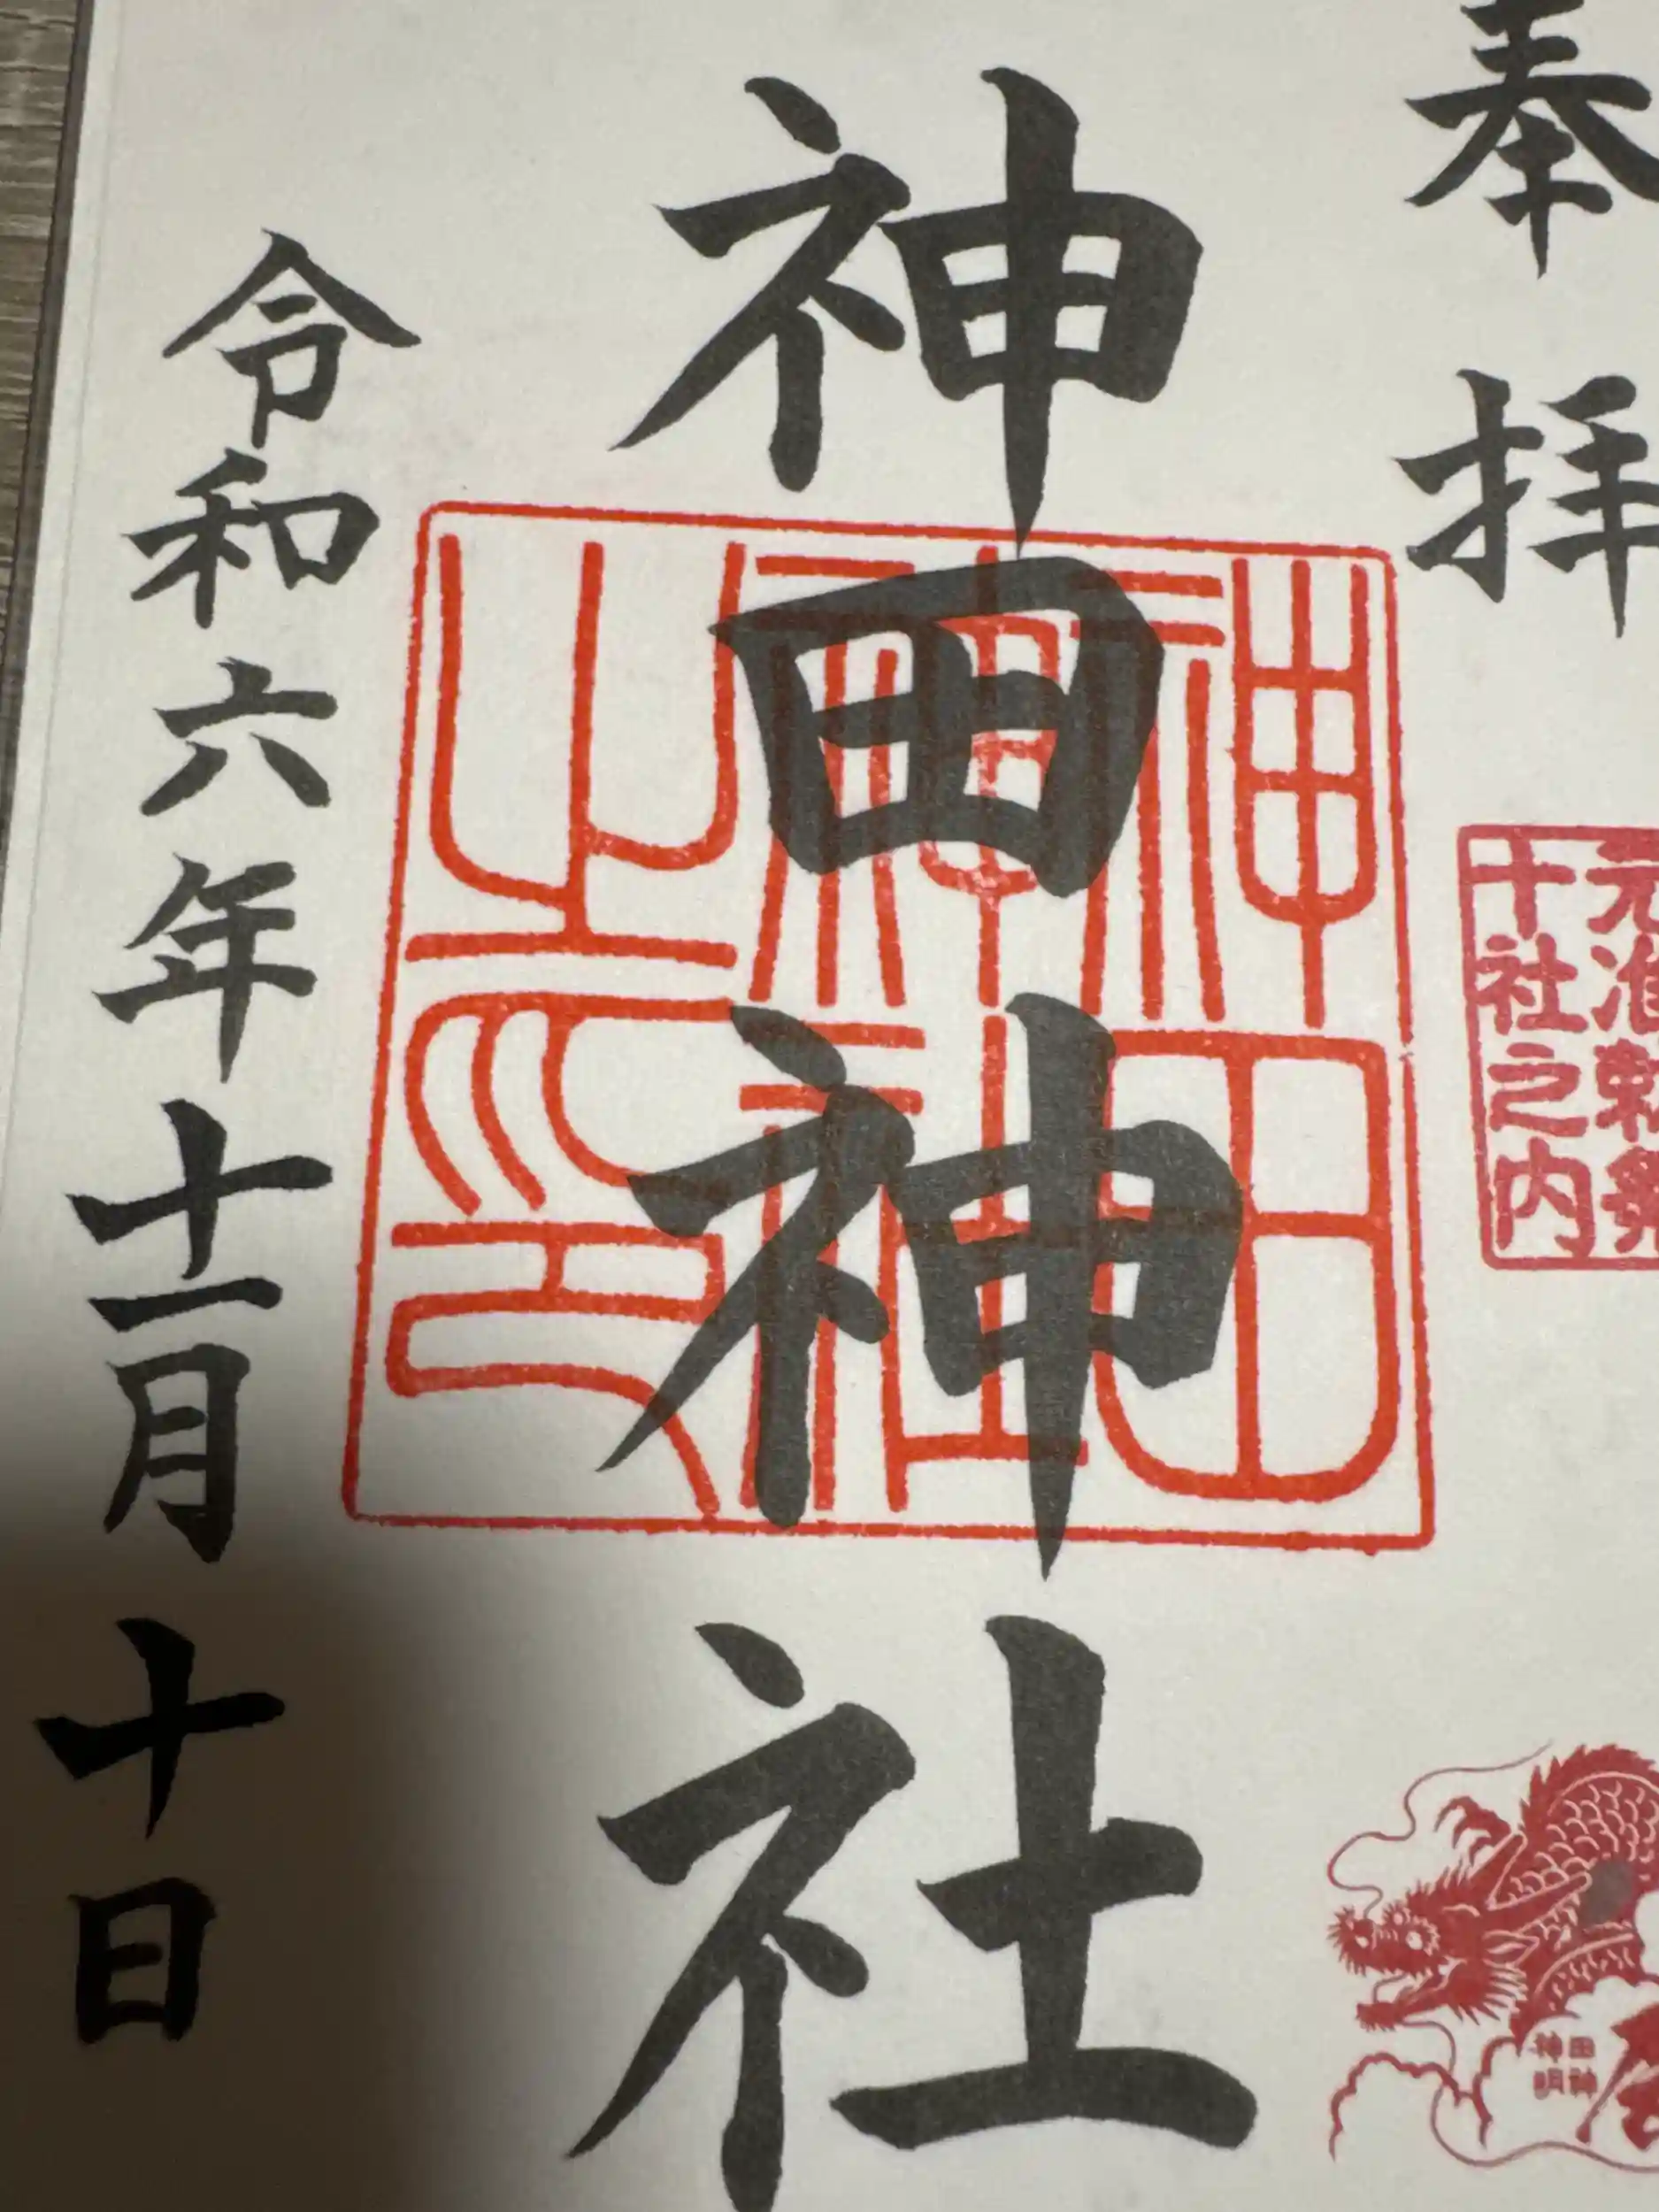 奉拝
元准勅祭
十社之内
神田神社
神田神社之印
田神
神明
令和六年十一月十日